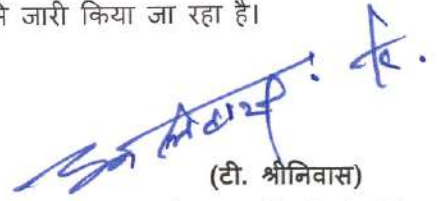 जारी किया जा रहा है।
(टी. श्रीनिवास)